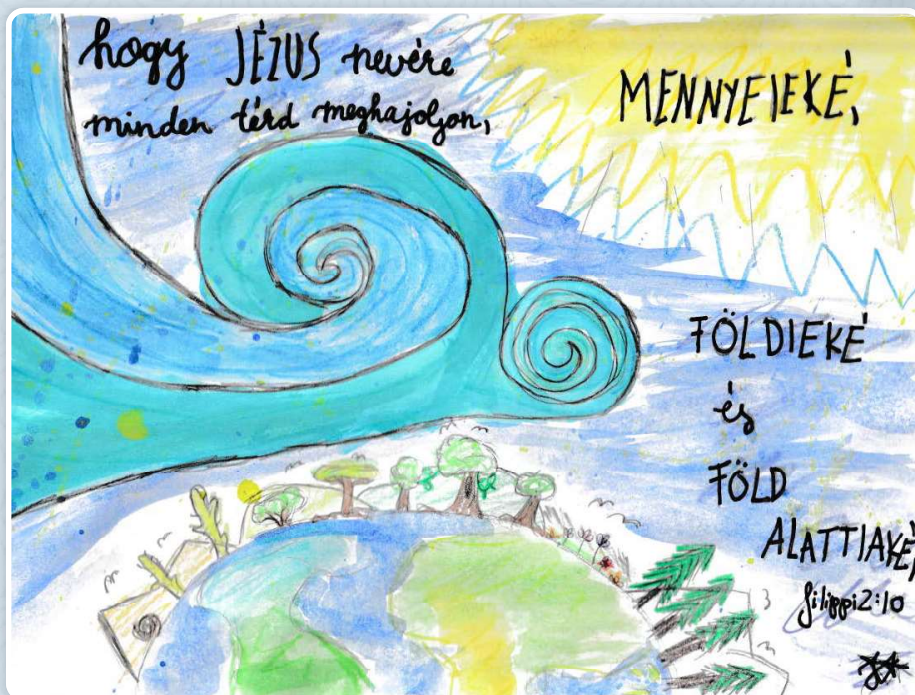 hogy JÉZUS nevére
minden térd meghajoljon,
MENNYEIEKÉ,
FÖLDIEKÉ
és
FÖLD
ALATTIAKÉ,
filippi 2:10